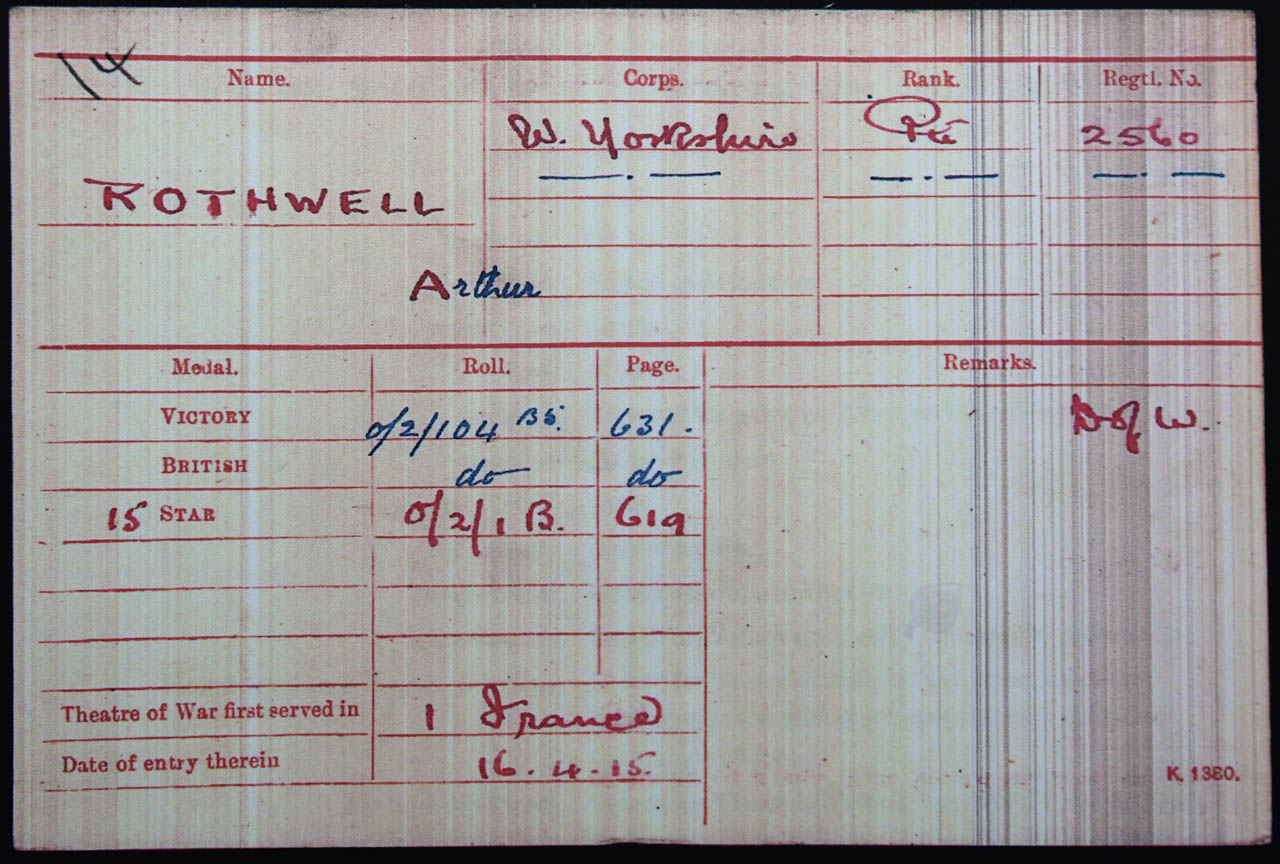 14
Name. Corps. Rank. Regtl. No.
W. Yorkshire Pte 2560
— . — — . — — . —
ROTHWELL
Arthur
Medal. Roll. Page. Remarks.
VICTORY O/2/104 B5. 631. D of W.
BRITISH do do
15 STAR O/2/1 B. 619
Theatre of War first served in 1 France
Date of entry therein 16.4.15.
K. 1380.